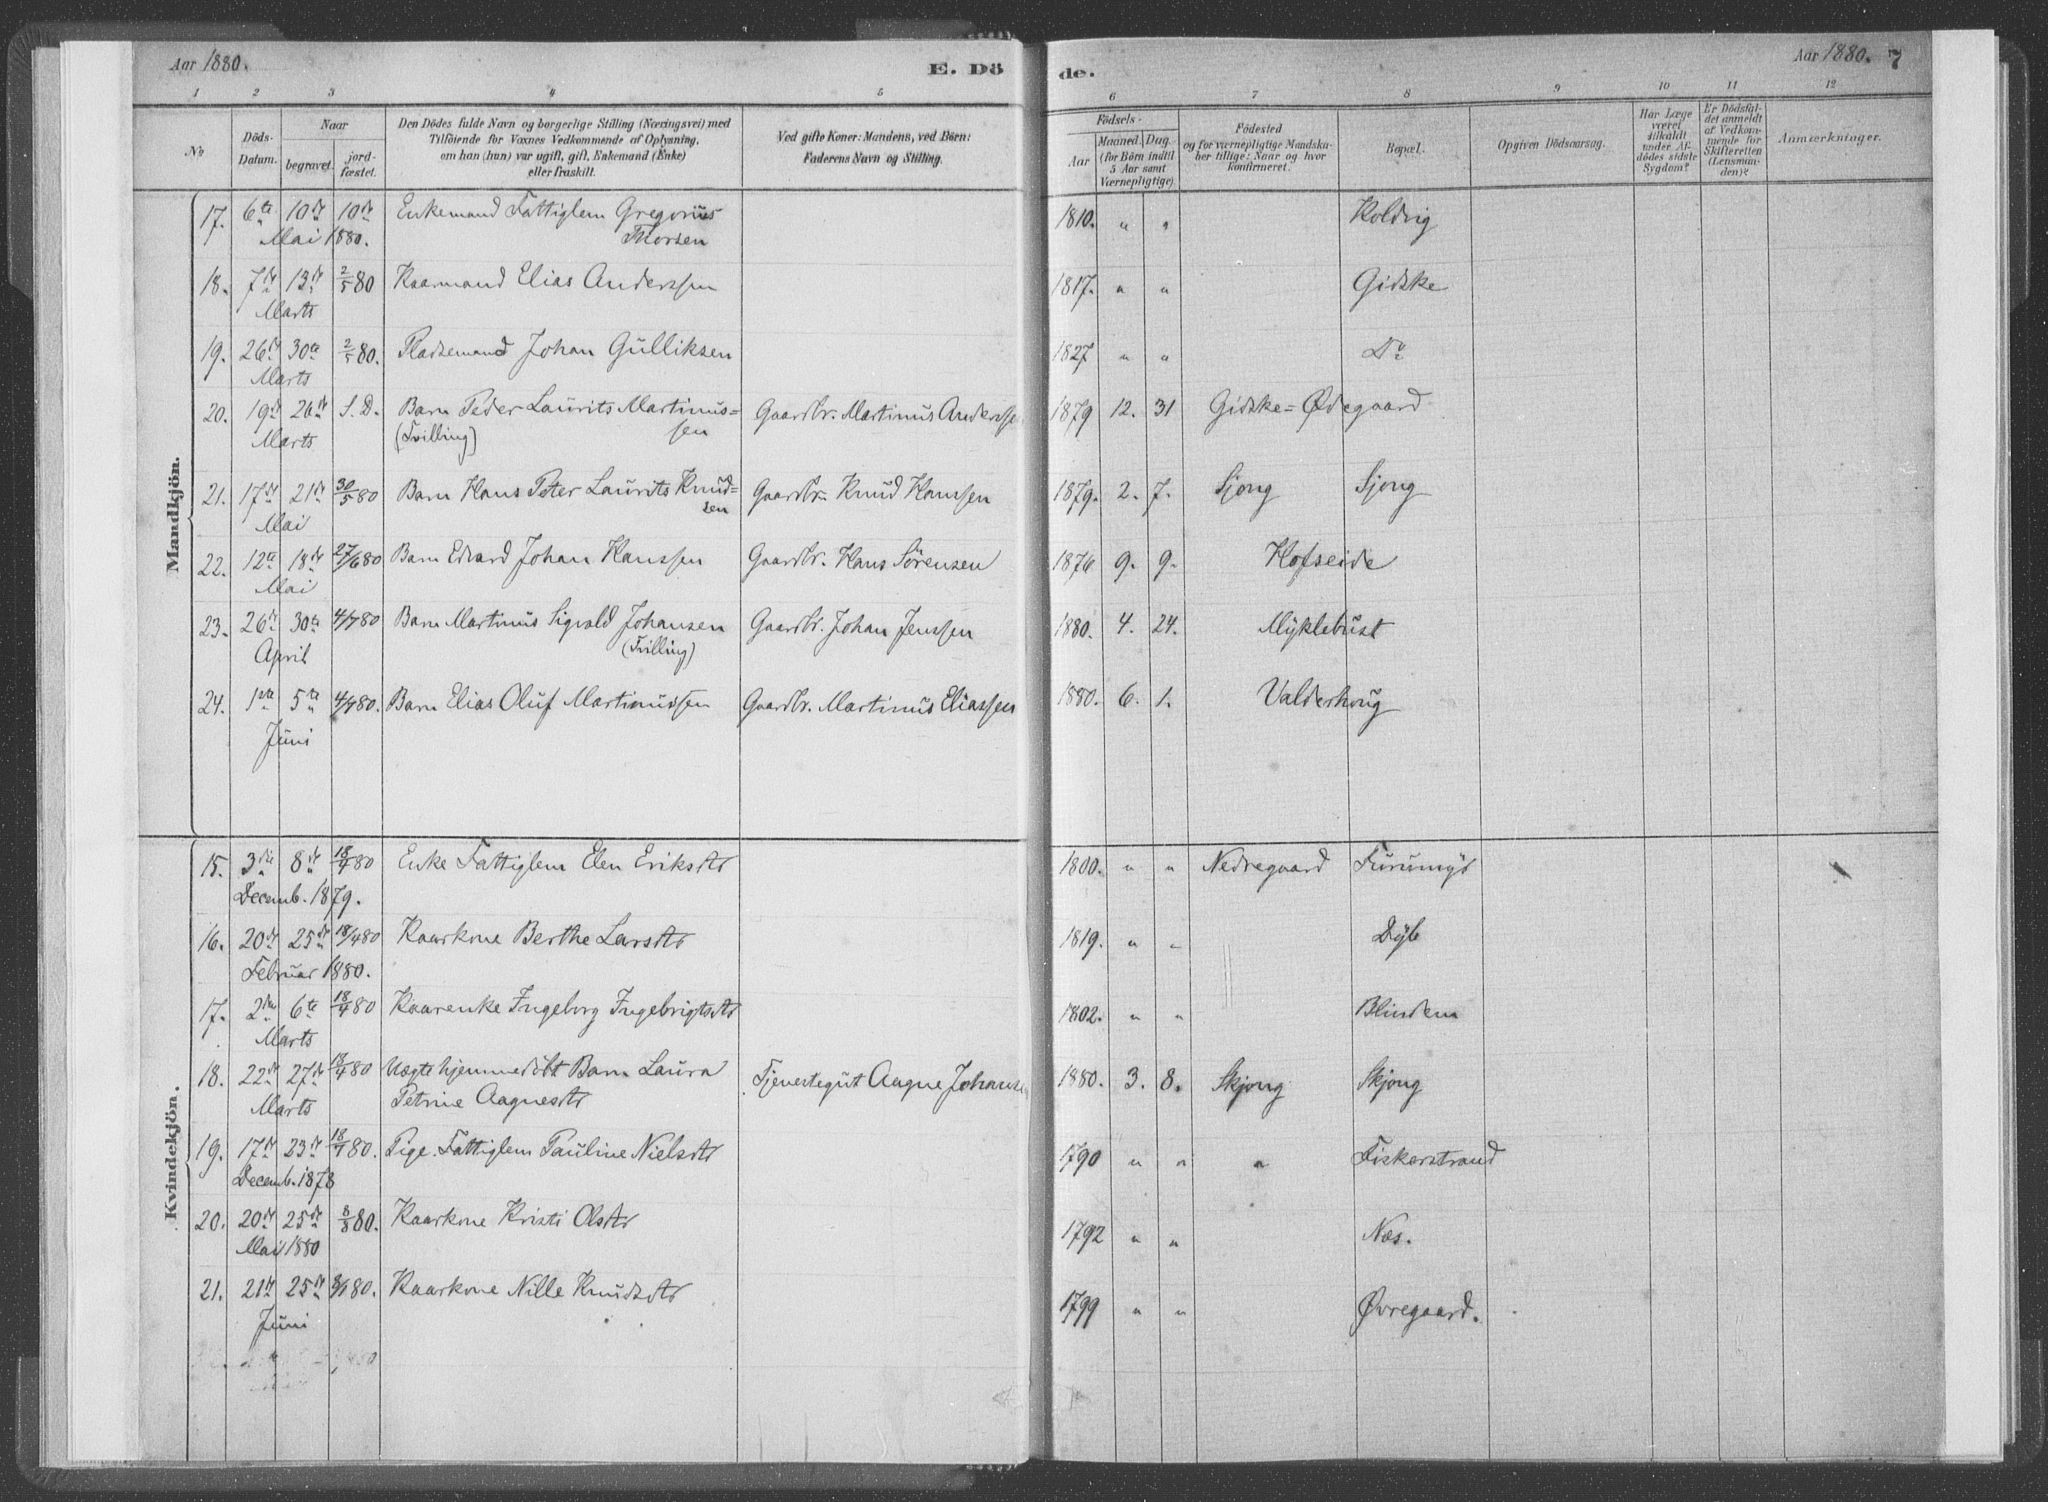 Aar 1880.
E. Dö
de.
Aar 1880. 7
1 2 3 4 5 6 7 8 9 10 11 12
No
Döds-Datum.
Naar
begravet.
jord-fæstet.
Den Dödes fulde Navn og borgerlige Stilling (Næringsvei) med
Tilföiende for Voxnes Vedkommende af Oplysning,
om han (hun) var ugift, gift, Enkemand (Enke)
eller fraskilt.
Ved gifte Koner: Mandens, ved Börn:
Faderens Navn og Stilling.
Födsels-
Aar
Maaned. Dag.
(for Börn indtil
5 Aar samt
Værnepligtige).
Födested
og for værnepligtige Mandska-
ber tillige: Naar og hvor
konfirmeret.
Bopæl.
Opgiven Dödsaarsag.
Har Læge
været
tilkaldt
under Af-
dödes sidste
Sygdom?
Er Dödsfal-
det anmeldt
af Vedkom-
mende for
Skifteretten
(Lensman-
den)?
Anmærkninger.
Mandkjön.
17. 6te 10de 10de Enkemand Fattiglem Gregorius 1810. " " Koldvig
Mai 1880. Thorsen
18. 7de 13de 2/5 80 Kaarmand Elias Anderssen 1817. " " Gidske
Marts
19. 26de 30te 2/5 80. Pladsemand Johan Gulliksen 1827 " " Do
Marts
20. 19de 26de S. D. Barn Peder Laurits Martinus= Gaardbr. Martinus Anderssen 1879 12. 31 Gidske=Ødegaard
Marts (Tvilling) sen
21. 17de 21de 30/5 80 Barn Hans Peter Laurits Knud= Gaardbr. Knud Hanssen 1879. 2. 7. Sjong Sjong
Mai sen
22. 12te 18de 27/6 80 Barn Edvard Johan Hanssen Gaardbr. Hans Sørensen 1876 9. 9. Hofseide
Mai
23. 26de 30te 4/7 80 Barn Martinus Sigvald Johansen Gaardbr. Johan Jenssen 1880. 4. 24. Myklebust
April (Tvilling)
24. 1ste 5te 4/7 80. Barn Elias Oluf Martinussen Gaardbr. Martinus Eliassen 1880. 6. 1. Valderhoug
Juni
Kvindekjön.
15. 3die 8de 18/4 80 Enke Fattiglem Elen Eriksdtr 1800. " " Nedregaard Furumyr
Decemb. 1879.
16. 20de 25de 18/4 80 Kaarkone Berthe Larsdtr 1819. " " Dyb
Februar 1880.
17. 2den 6te 18/4 80 Kaarenke Ingeborg Ingebrigtsdtr 1802. " " Blindem
Marts
18. 22de 27de 18/4 80 Uægte hjemmedöbt Barn Laura Tjenestegut Aagne Johansen 1880. 3. 8. Skjong Skjong
Marts Petrine Aagnesdtr
19. 17de 23de 18/4 80. Pige. Fattiglem Pauline Nielsdtr 1790 " " " Fiskerstrand
Decemb. 1878
20. 20de 25de 8/8 80. Kaarkone Kristi Olsdtr 1792 " " Næs.
Mai 1880
21. 21de 25de 80. Kaarkone Nille Knudsdtr 1799 " " Øvregaard.
Juni